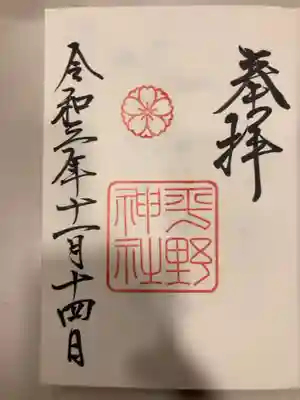 奉拝
平野
神社
令和年十一月十四日